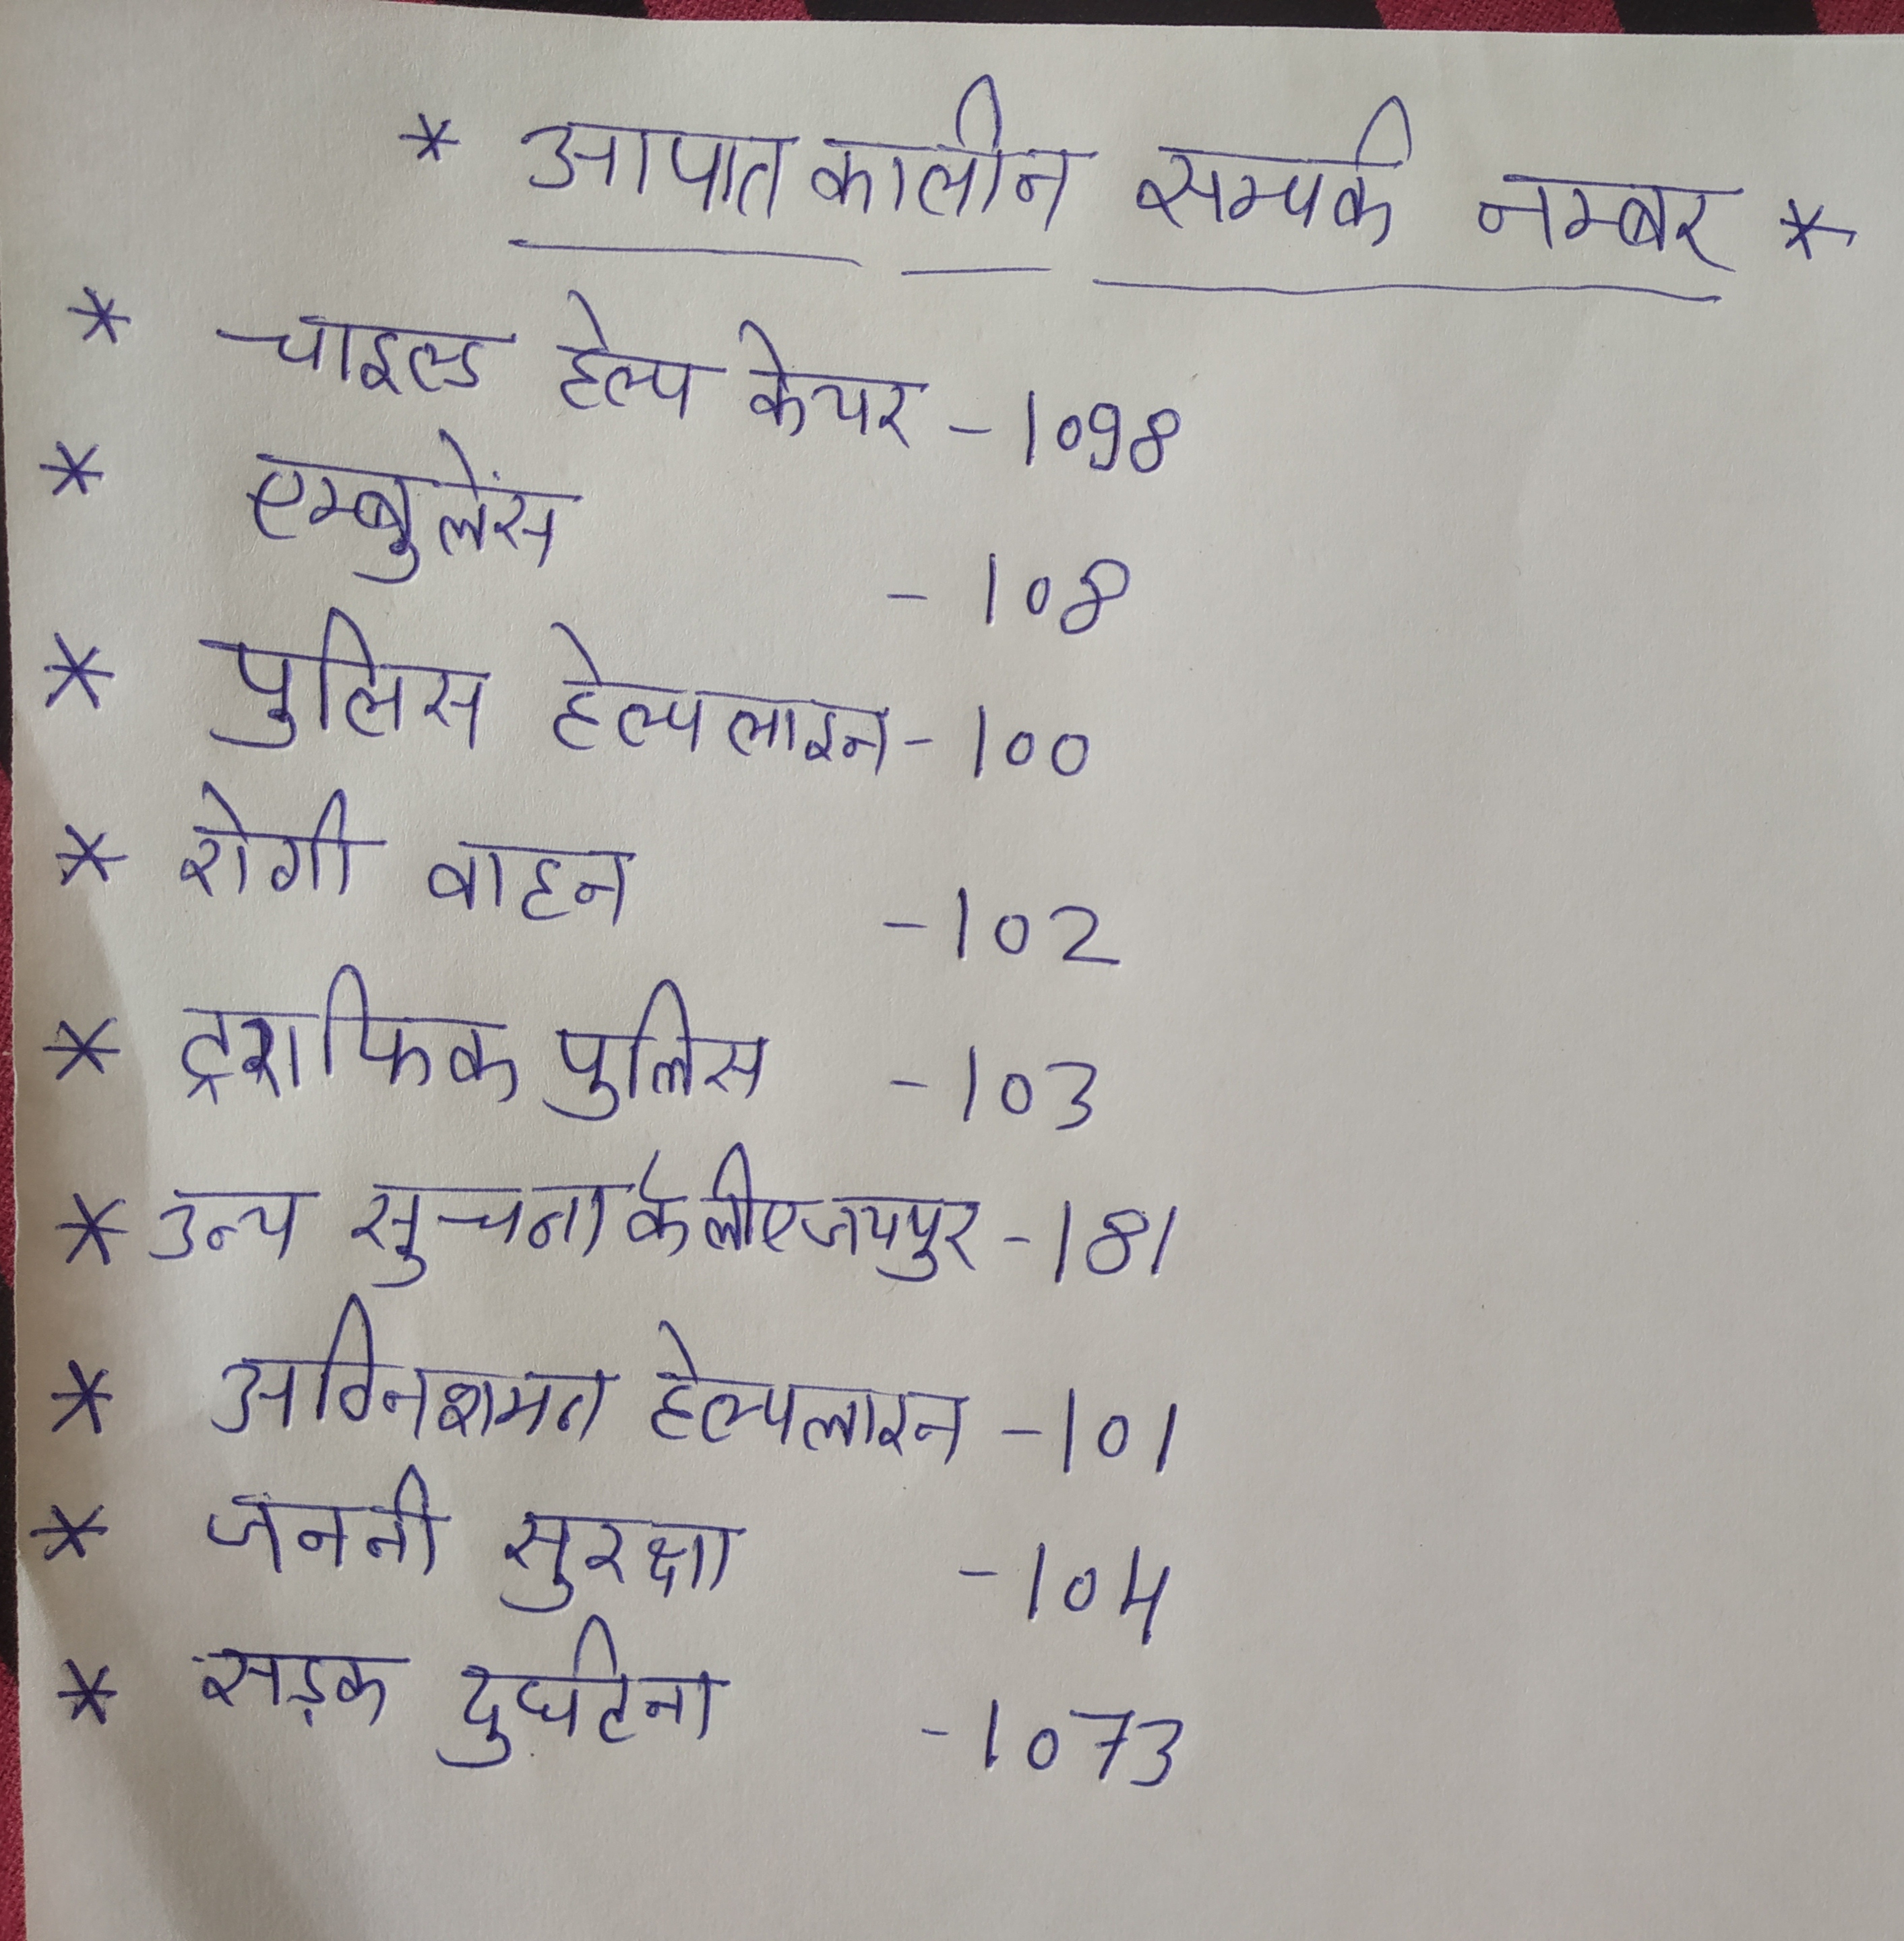 * आपातकालीन सम्पर्क नम्बर *
* चाइल्ड हेल्प केयर - 1098
* एम्बुलेंस - 108
* पुलिस हेल्पलाइन - 100
* रोगी वाहन - 102
* ट्रराफिक पुलिस - 103
* उन्य सुचना के लीए जयपुर - 181
* अग्निशमन हेल्पलाइन - 101
* जननी सुरक्षा - 104
* सड़क दुर्घटना - 1073